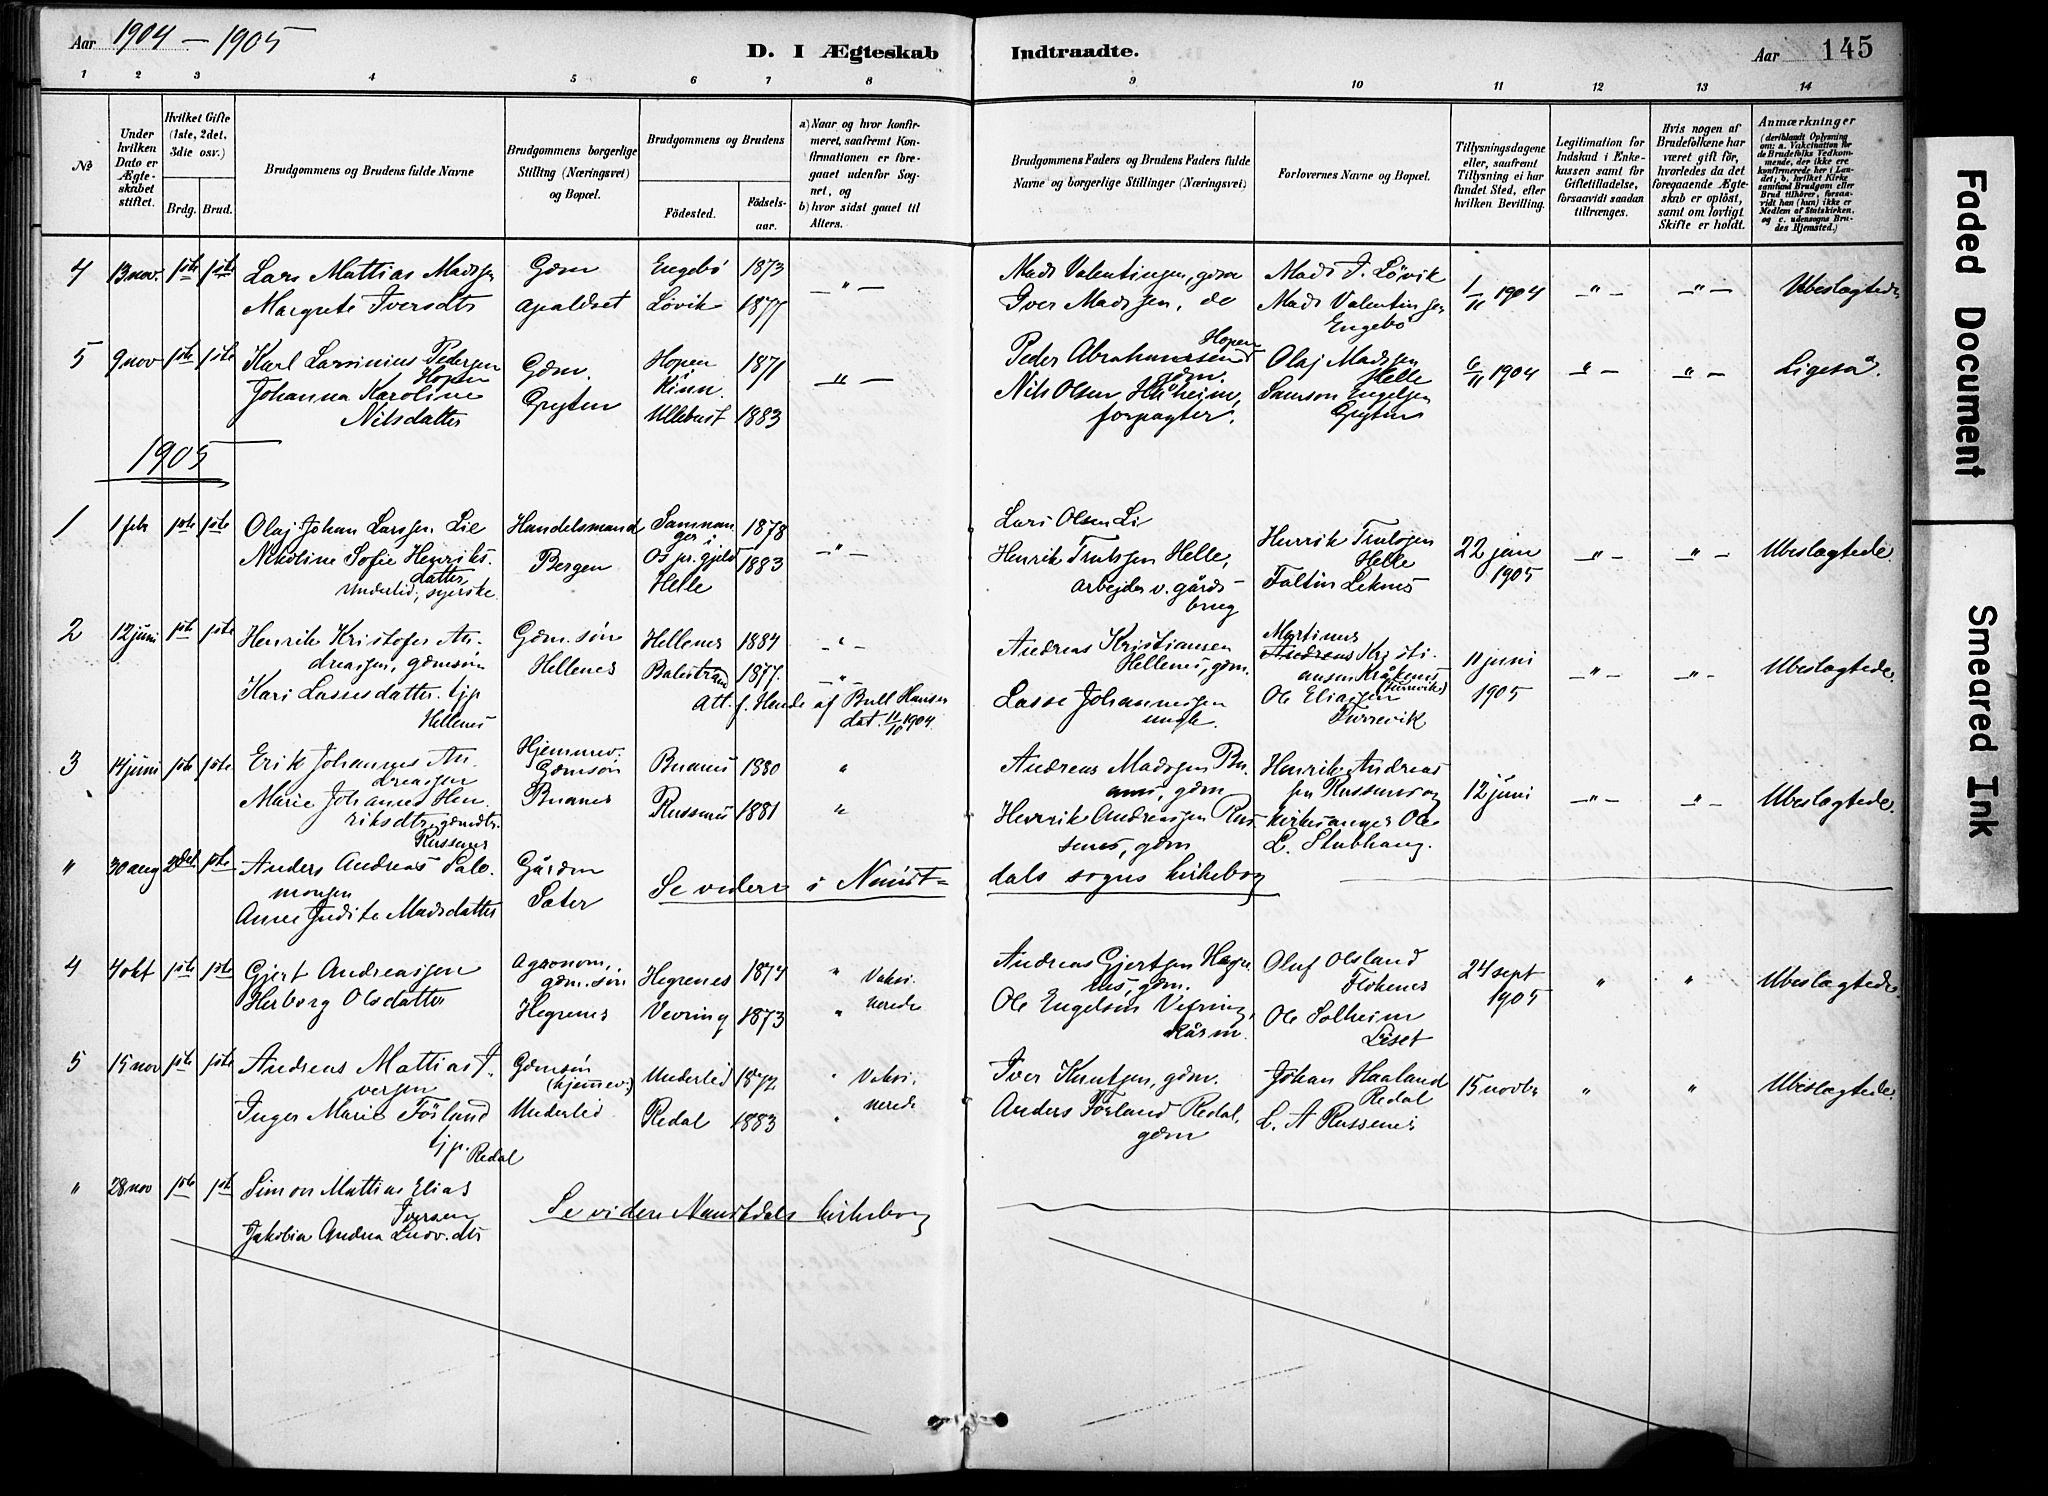 Aar 1904 – 1905
D. I Ægteskab Indtraadte.
Aar 145
1 2 3 4 5 6 7 8 9 10 11 12 13 14
No
Under hvilken Dato er Ægteskabet stiftet.
Hvilket Gifte (1ste, 2det, 3die osv.)
Brdg. Brud.
Brudgommens og Brudens fulde Navne
Brudgommens borgerlige Stilling (Næringsvei) og Bopæl.
Brudgommens og Brudens
Födested.
Födselsaar.
a) Naar og hvor konfirmeret, saafremt Konfirmationen er foregaaet udenfor Sognet, og
b) hvor sidst gaaet til Alters.
Brudgommens Faders og Brudens Faders fulde Navne og borgerlige Stillinger (Næringsvei)
Forlovernes Navne og Bopæl.
Tillysningsdagene eller, saafremt Tillysning ei har fundet Sted, efter hvilken Bevilling.
Legitimation for Indskud i Enkekassen samt for Giftetilladelse, forsaavidt saadan tiltrænges.
Hvis nogen af Brudefolkene har været gift för, hvorledes da det foregaaende Ægteskab er oplöst, samt om lovligt Skifte er holdt.
Anmærkninger
(deriblandt Oplysning om: a. Vakcination for de Brudefolks Vedkommende, der ikke ere konfirmerede her i Landet; b. hvilket Kirkesamfund Brudgom eller Brud tilhörer, forsaavidt han (hun) ikke er Medlem af Statskirken, og c. udensogns Brudes Hjemsted.)
4 13 nov. 1ste 1ste Lars Mattias Madsen Gdm Engebö 1873 – " – Mads Valentinsen, gdm Mads I. Lövik 1/11 1904 – " – – " – Ubeslægtede
Margrete Iversdtr Apaldset Lövik 1877 Iver Madsen, do Mads Valentinsen
Engebö
5 9 nov 1ste 1ste Karl Larsinius Pedersen Gdm. Hopen 1871 – " – Peder Abrahamsen Hopen Olaj Madsen 6/11 1904 – " – – " – Ligeså.
Hopen i gdm. Helle
Johanna Karoline Gryten Kinn. Nils Olsen Húheim, Samson Engelsen
Nilsdatter Ullebust 1883 forpagter. Grytens
1905
1 1 feb 1ste 1ste Olaj Johan Larssen Lie Handelsmand Samnan 1878 Lars Olsen Li
ger i
Nikoline Sofie Henriks- Bergen Os pr.gjeld 1883 – " – Henrik Trulssen Helle, Henrik Trulssen 22 jan – " – – " – Ubeslægtede
datter Helle arbejder v. gårds- Helle 1905
Underlid, syerske. brug Faltin Leknes
2 12 juni 1ste 1ste Henrik Kristofer An- Gdm. søn Hellenes 1884 " Andreas Kristiansen Martinus
dreassen, gdmsön Hellenes Balestrand 1877. – " – Hellenes, gdm. Andreas Kristi- 11 juni – " – – " – Ubeslægtede
ansen Kråkenes
Kari Lassesdatter. tjp Att. f. Hande af Bull Hansen Lasse Johannessen Ole Eliassen 1905
Hellenes dat. 11/10 1904. Furrevik
3 14 juni 1ste 1ste Erik Johannes An- Hjemmev. Buanes 1880 " Andreas Madssen Bu- Henrik Andreas
dreassen Gdmsön anes, gdm sen Russenes og 12 juni – " – – " – Ubeslægtede
Marie Johanne Hen- Buanes Russenes 1881 " Henrik Andreassen Rus- kirkesanger Ole
riksdtr, gdmdtr. senes, gdm L. Stubhaug.
Russenes
" 30 aug 2det 1ste Anders Andreas Salo- Gårdm Se videre i Naust- dals sogns kirkebog
monsen
Anne Judite Madsdatter Sater
4 4 okt 1ste 1ste Gjert Andreassen Agronom, Hegrenes 1874 " Vaksi- Andreas Gjertsen Hegre- Oluf Olsland 24 sept " " Ubeslægtede
gdm. sön nes, gdm. Flokenes
Herborg Olsdatter Hegrenes Vevring 1873 " nerede Ole Engelsen Vefring, Ole Solheim 1905
Liset
5 15 nov 1ste 1ste Andreas Mattias I- Gdmsön Underlid 1872 " Vaksi- Iver Knutsen, gdm. Johan Haaland 15 novbr " " Ubeslægtede
versen (hjemev:) Redal
Inger Marie Förland Underlid Redal 1883 " nerede Anders Förland Redal, L. A Russenes
tjp. Redal gdm
" 28 nov 1ste 1ste Simon Mattias Elias Se videre Naustdals kirkebog
Iversen
Jakobia Andrea Ludv. dtr
Faded Document
Smeared Ink